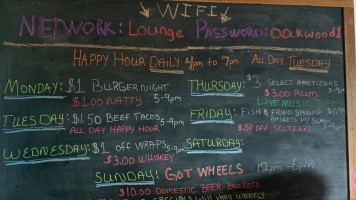 WIFI
NETWORK: Lounge PASSWORD: oakwood1
HAPPY HOUR DAILY 4pm to 7pm ALL DAY TUESDAY
MONDAY: $1 BURGER NIGHT 5-9pm
$1.00 NATTY
TUESDAY: $1.50 BEEF TACOS 5-9pm
ALL DAY HAPPY HOUR
WEDNESDAY: $1 off WRAPS 5-9pm
$3.00 WHISKEY
THURSDAY: $3 SELECT APPETIZERS
$3.00 RUM 5-9pm
LIVE MUSIC
FRIDAY: FISH & FRIED SHRIMP
BASKETS w/ SLAW
$.50 OFF SELTZERS 5-9pm
SATURDAY:
SUNDAY: GOT WHEELS 12pm-6pm
$10.00 DOMESTIC BEER BUCKETS
SPECIALS WILL VARY WEEKLY